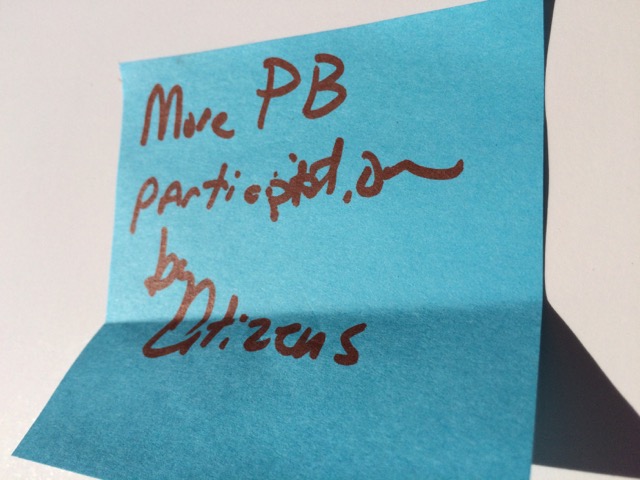 More PB
participation
by
Citizens